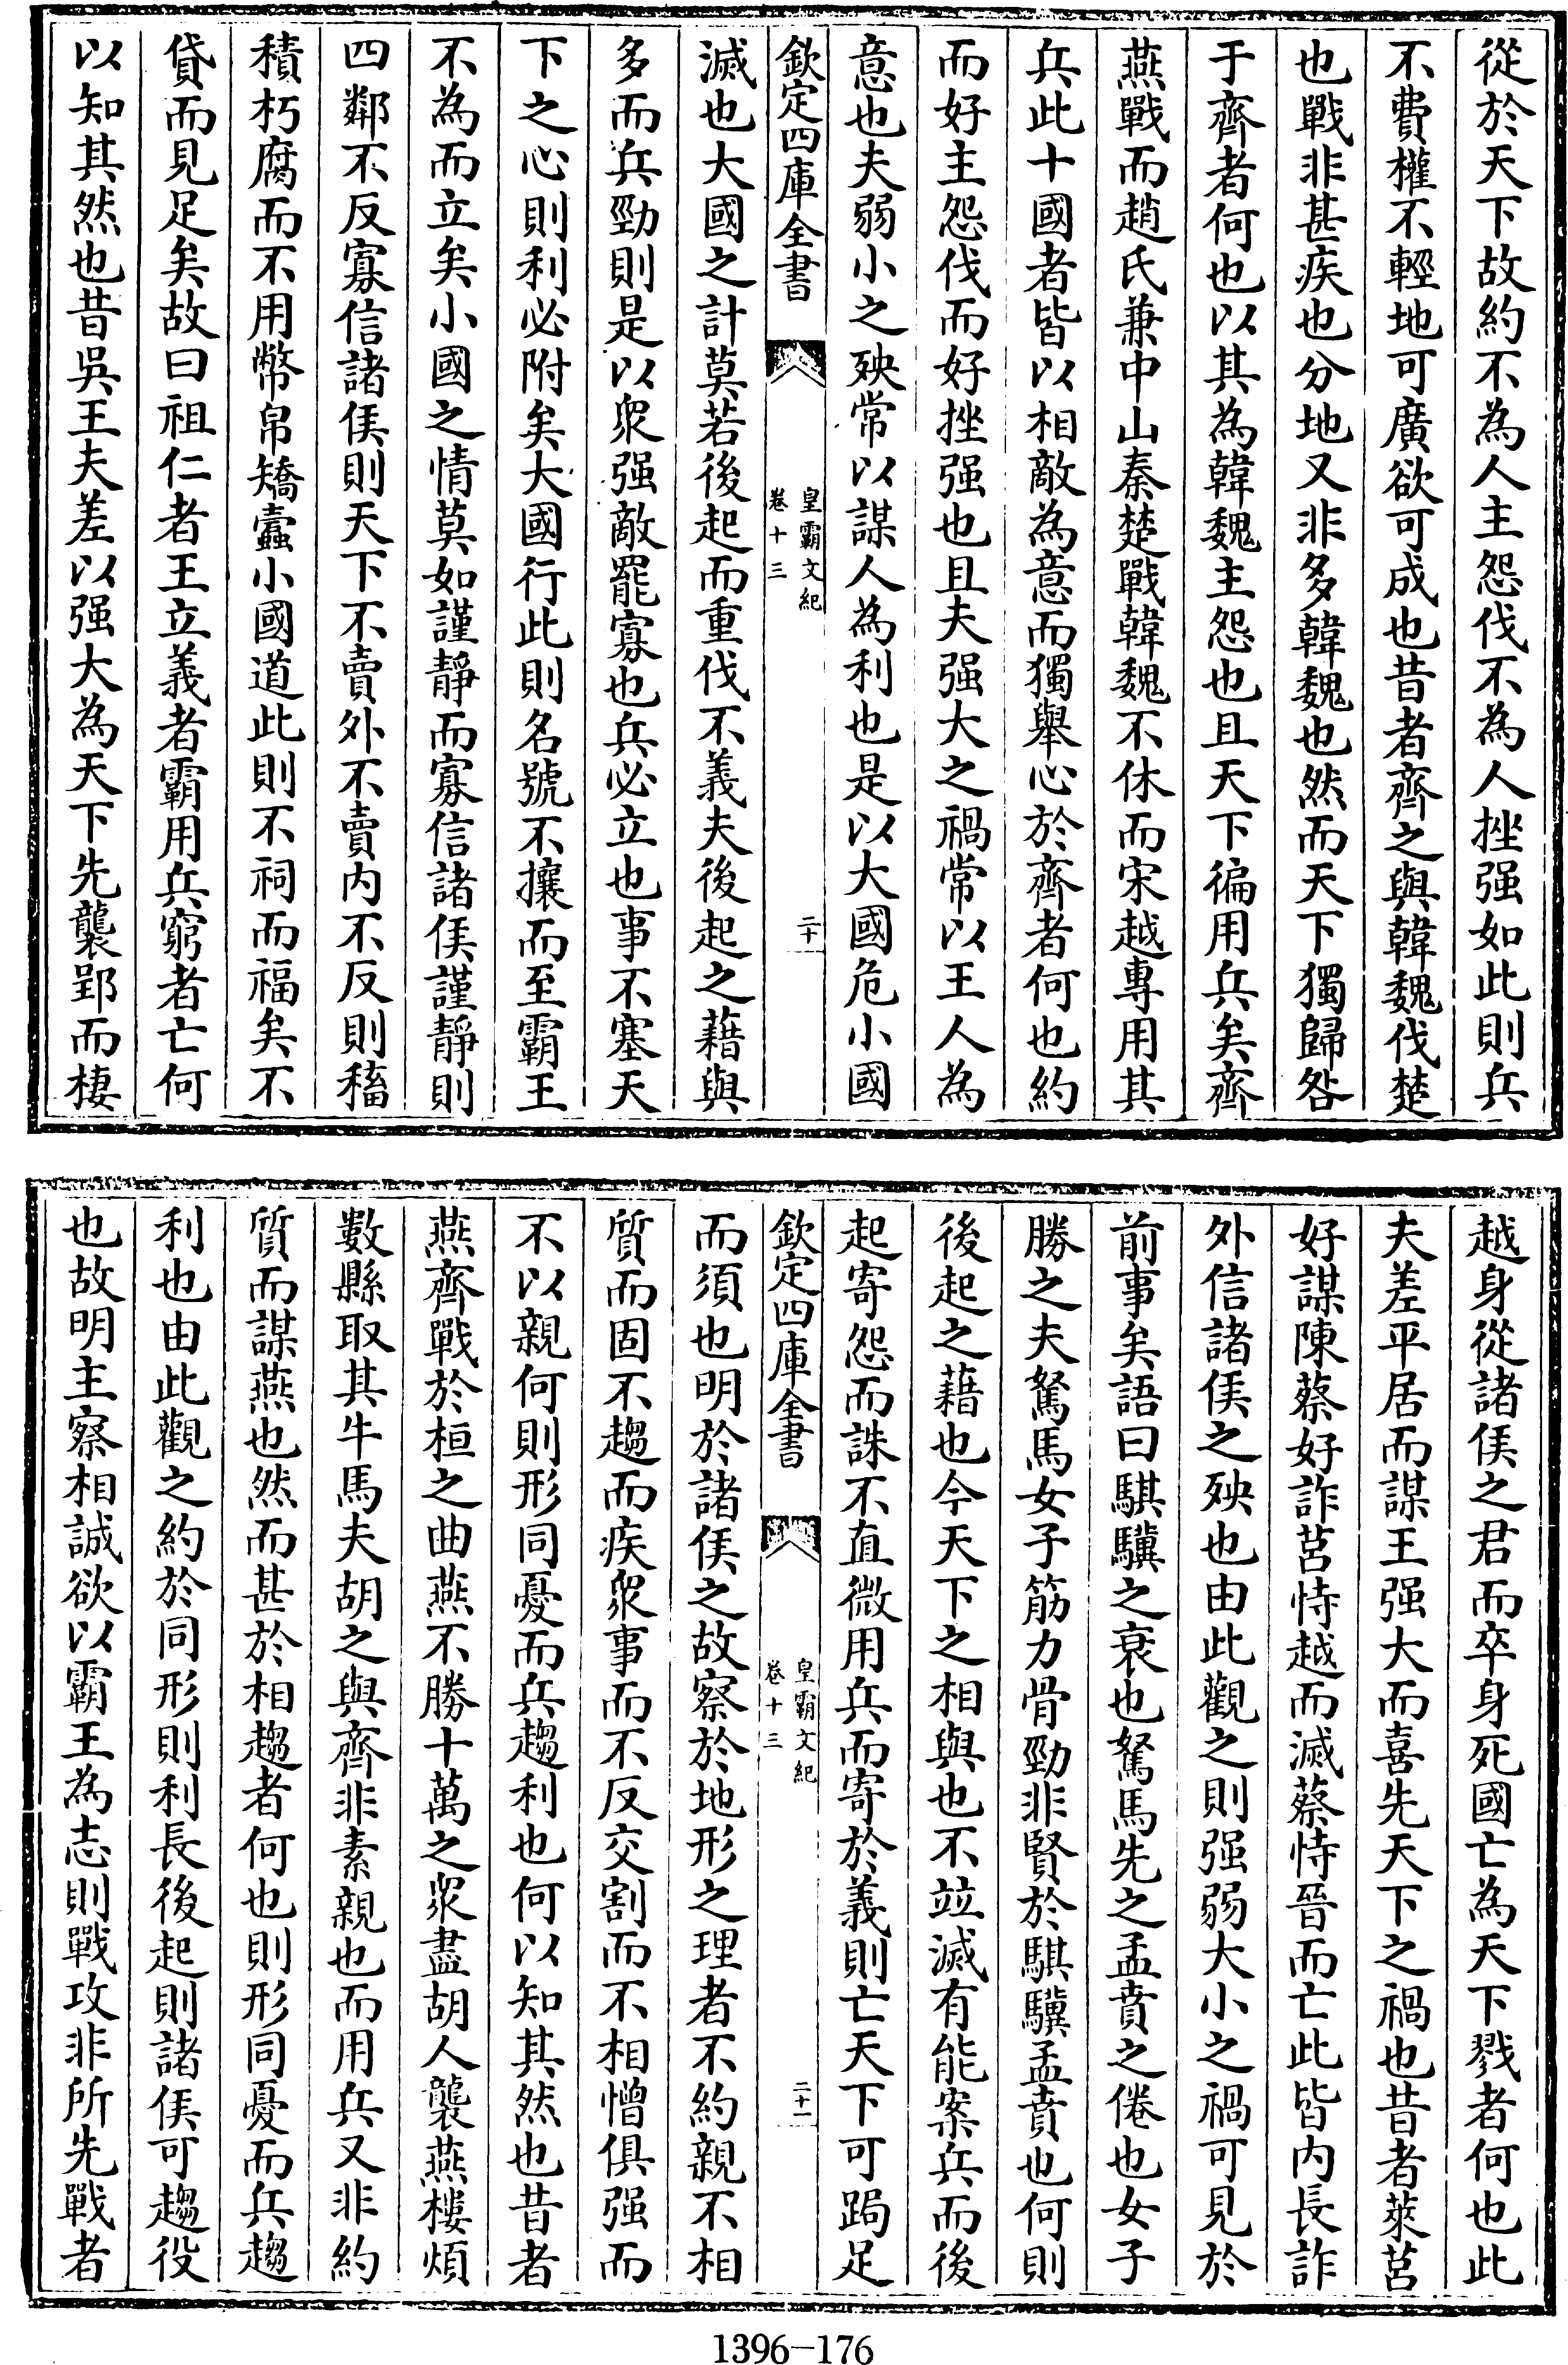 從於天下故約不為人主怨伐不為人挫强如此則兵
不費權不輕地可廣欲可成也昔者齊之與韓魏伐楚
也戰非甚疾也分地又非多韓魏也然而天下獨歸咎
于齊者何也以其為韓魏主怨也且天下徧用兵矣齊
燕戰而趙氏兼中山秦楚戰韓魏不休而宋越專用其
兵此十國者皆以相敵為意而獨舉心於齊者何也約
而好主怨伐而好挫强也且夫强大之禍常以王人為
意也夫弱小之殃常以謀人為利也是以大國危小國
欽定四庫全書
皇霸文紀
卷十三
二十
滅也大國之計莫若後起而重伐不義夫後起之藉與
多而兵勁則是以衆强敵罷寡也兵必立也事不塞天
下之心則利必附矣大國行此則名號不攘而至霸王
不為而立矣小國之情莫如謹靜而寡信諸侯謹靜則
四鄰不反寡信諸侯則天下不賣外不賣内不反則稸
積朽腐而不用幣帛矯蠧小國道此則不祠而福矣不
貸而見足矣故曰祖仁者王立義者霸用兵窮者亡何
以知其然也昔吳王夫差以强大為天下先襲郢而棲
越身從諸侯之君而卒身死國亡為天下戮者何也此
夫差平居而謀王强大而喜先天下之禍也昔者萊莒
好謀陳蔡好詐莒恃越而滅蔡恃晉而亡此皆内長詐
外信諸侯之殃也由此觀之則强弱大小之禍可見於
前事矣語曰騏驥之衰也駑馬先之孟賁之倦也女子
勝之夫駑馬女子筋力骨勁非賢於騏驥孟賁也何則
後起之藉也今天下之相與也不竝滅有能案兵而後
起寄怨而誅不直微用兵而寄於義則亡天下可跼足
欽定四庫全書
皇霸文紀
卷十三
二十一
而須也明於諸侯之故察於地形之理者不約親不相
質而固不趨而疾衆事而不反交割而不相憎俱强而
不以親何則形同憂而兵趨利也何以知其然也昔者
燕齊戰於桓之曲燕不勝十萬之衆盡胡人襲燕樓煩
數縣取其牛馬夫胡之與齊非素親也而用兵又非約
質而謀燕也然而甚於相趨者何也則形同憂而兵趨
利也由此觀之約於同形則利長後起則諸侯可趨役
也故明主察相誠欲以霸王為志則戰攻非所先戰者
1396-176